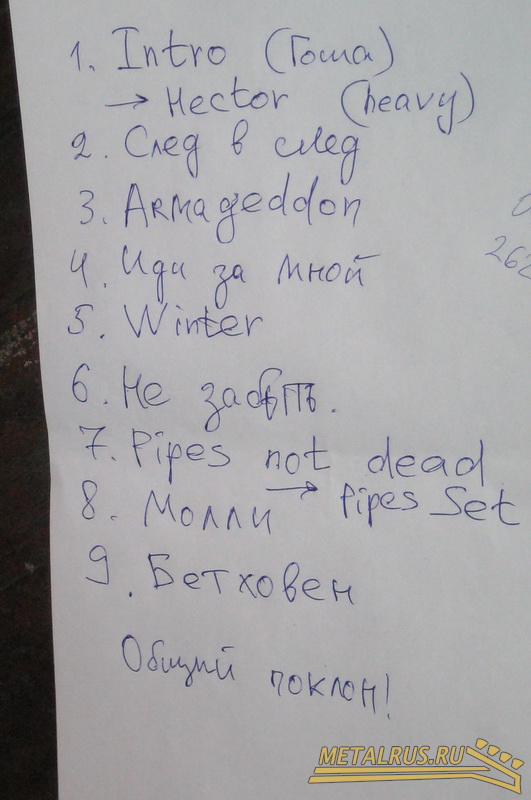 1. Intro (Гоша)
→ Hector (heavy)
2. След в след
3. Armageddon
4. Иди за мной
5. Winter
6. Не забыть.
7. Pipes not dead
→ Pipes Set
8. Молли
9. Бетховен
Общий поклон!
262
METALRUS.RU